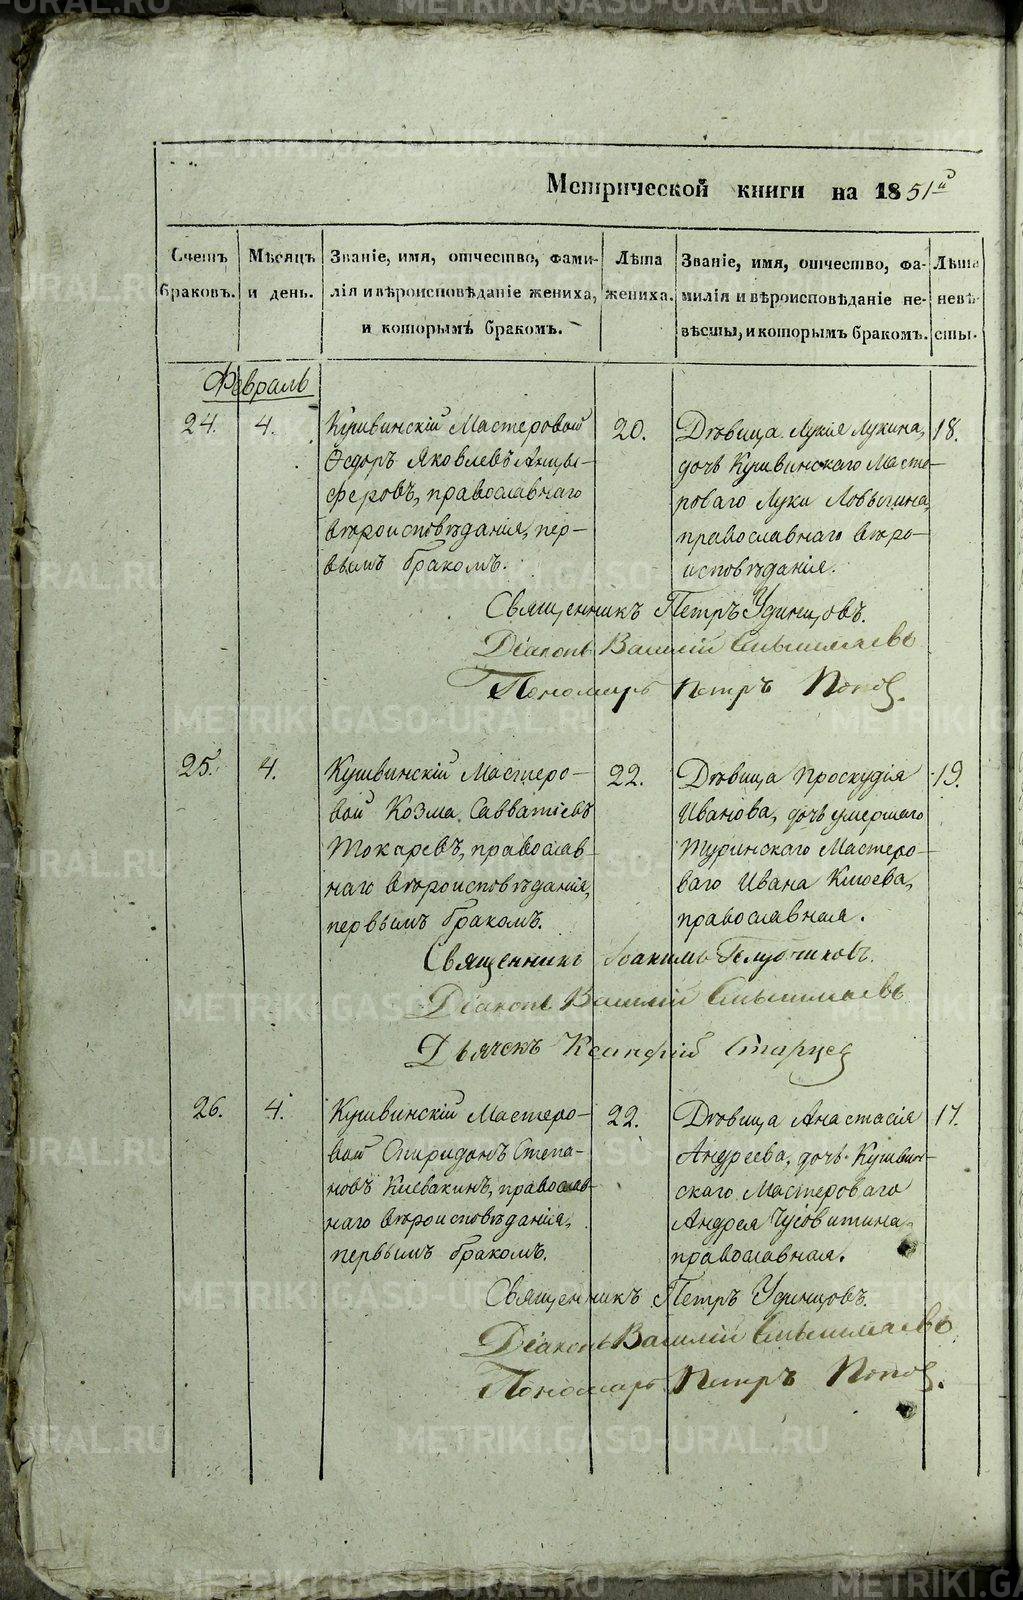 Метрической книги на 1851й
Счетъ браковъ.
Мѣсяцъ и день.
Званіе, имя, отчество, фами-
лія и вѣроисповѣданіе жениха,
и которымъ бракомъ.
Лѣта жениха.
Званіе, имя, отчество, фа-
милія и вѣроисповѣданіе не-
вѣсты, и которымъ бракомъ.
Лѣта невѣ-
сты.
Февраль
24. 4.
Кушвинскій Мастеровой
Ѳедоръ Яковлевъ Анцы-
феровъ, православнаго
вѣроисповѣданія, пер-
вымъ бракомъ.
20.
Дѣвица Лукія Лукина,
дочь Кушвинскаго Масте-
роваго Луки Ловыгина,
православнаго вѣро-
исповѣданія.
18.
Священникъ Петръ Удинцовъ.
Діаконъ Василій Смышляевъ
Пономарь Петръ Попов.
25. 4.
Кушвинскій Мастеро-
вой Козма Савватіевъ
Токаревъ, православ-
наго вѣроисповѣданія,
первымъ бракомъ.
22.
Дѣвица Проскудія
Иванова, дочь умершаго
Туринскаго Мастеро-
ваго Ивана Клюева,
православная.
19.
Священникъ Іоакимъ
Діаконъ Василій Смышляевъ
Дьячекъ Ксенофий Старцев
26. 4.
Кушвинскій Мастеро-
вой Спиридонъ Степа-
новъ Кисвакинъ, православ-
наго вѣроисповѣданія,
первымъ бракомъ.
22.
Дѣвица Анастасія
Андреева, дочь Кушвин-
скаго Мастероваго
Андрея Чусовитина,
православная.
17.
Священникъ Петръ Удинцовъ.
Діаконъ Василій Смышляевъ
Пономарь Петръ Попов.
METRIKI.GASO-URAL.RU